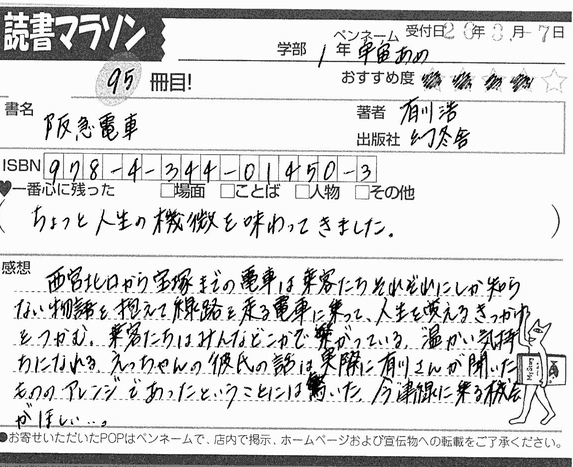 読書マラソン
学部 1年 ペンネーム 宇宙あめ 受付日 20年3月-7日
95 冊目!
おすすめ度 ★★★★☆
書名 阪急電車
著者 有川浩
出版社 幻冬舎
ISBN 978-4-344-01450-3
♥一番心に残った □場面 □ことば □人物 □その他
(ちょっと人生の機微を味わってきました。)
感想 西宮北口から宝塚までの電車は乗客たちそれぞれにしか知ら
ない物語を抱えて線路を走る電車に乗って、人生を変えるきっかけ
をつかむ。乗客たちはみんなどこかで繋がっている。温かい気持
ちになれる。えっちゃんの彼氏の話は実際に有川さんが聞いた
もののアレンジであったということには驚いた。今津線に乗る機会
がほしい…。
●お寄せいただいたPOPはペンネームで、店内で掲示、ホームページおよび宣伝物への転載をご了承ください。